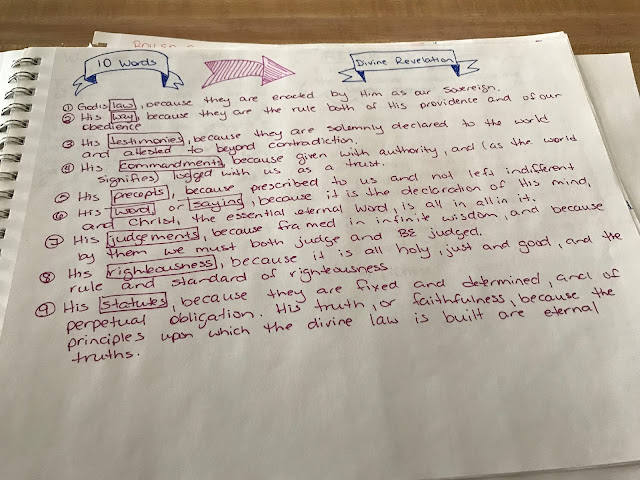 10 Words
Divine Revelation
① God's law, because they are enacted by Him as our Sovereign.
② His way, because they are the rule both of His providence and of our
obedience
③ His testimonies, because they are solemnly declared to the world
and attested to beyond contradiction.
④ His commandments, because given with authority, and (as the world
signifies) lodged with us as a trust.
⑤ His precepts, because prescribed to us and not left indifferent
⑥ His word, or saying, because it is the declaration of His mind,
and Christ, the essential eternal Word, is all in all in it.
⑦ His judgements, because framed in infinite wisdom, and because
by them we must both judge and BE judged.
⑧ His righteousness, because it is all holy, just and good, and the
rule and standard of righteousness
⑨ His statutes, because they are fixed and determined, and of
perpetual obligation. His truth, or faithfulness, because the
principles upon which the divine law is built are eternal
truths.